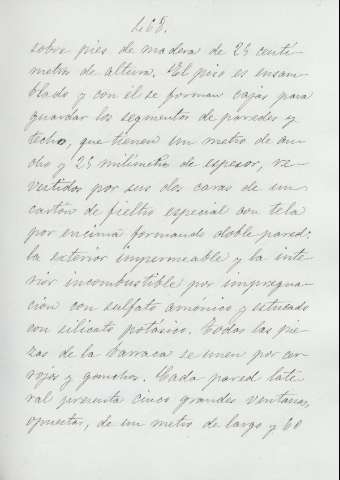 468.
sobre pies de madera de 25 centí-
metros de altura. El piso es ensam-
blado y con él se forman cajas para
guardar los segmentos de paredes y
techo, que tienen un metro de an-
cho y 25 milímetros de espesor, re-
vestidos por sus dos caras de un
cartón de fieltro especial con tela
por encima formando doble pared;
la exterior impermeable y la inte-
rior incombustible por impregna-
ción con sulfato amónico y estucado
con silicato potásico. Todas las pie-
zas de la barraca se unen por cer-
rojos y ganchos. Cada pared late-
ral presenta cinco grandes ventanas,
opuestas, de un metro de largo y 60